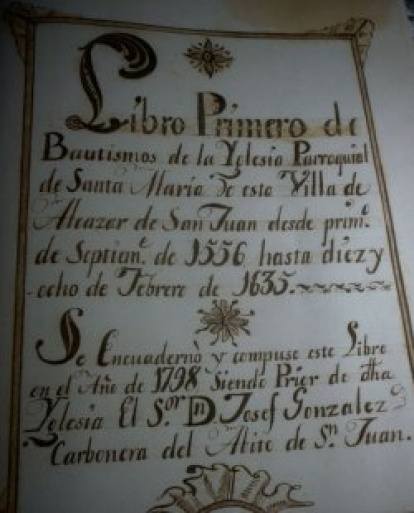 Libro Primero de
Bautismos de la Yglesia Parroquial
de Santa Maria de esta Villa de
Alcazar de San Juan desde prim.º
de Septiem.e de 1556 hasta diez y
ocho de Febrero de 1635.
Se Encuadernò y compuso este Libro
en el Año de 1798 Siendo Prior de dha
Yglesia El S.or Dn Josef Gonzalez
Carbonera del Abito de Sn Juan.